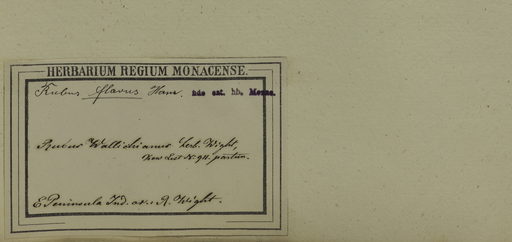 HERBARIUM REGIUM MONACENSE.
Rubus flavus Ham. fide cat. hb. Monac.
Rubus Wallichianus herb. Wight,
Kew List N. 911. partim.
E Peninsula Ind. or. R. Wight.